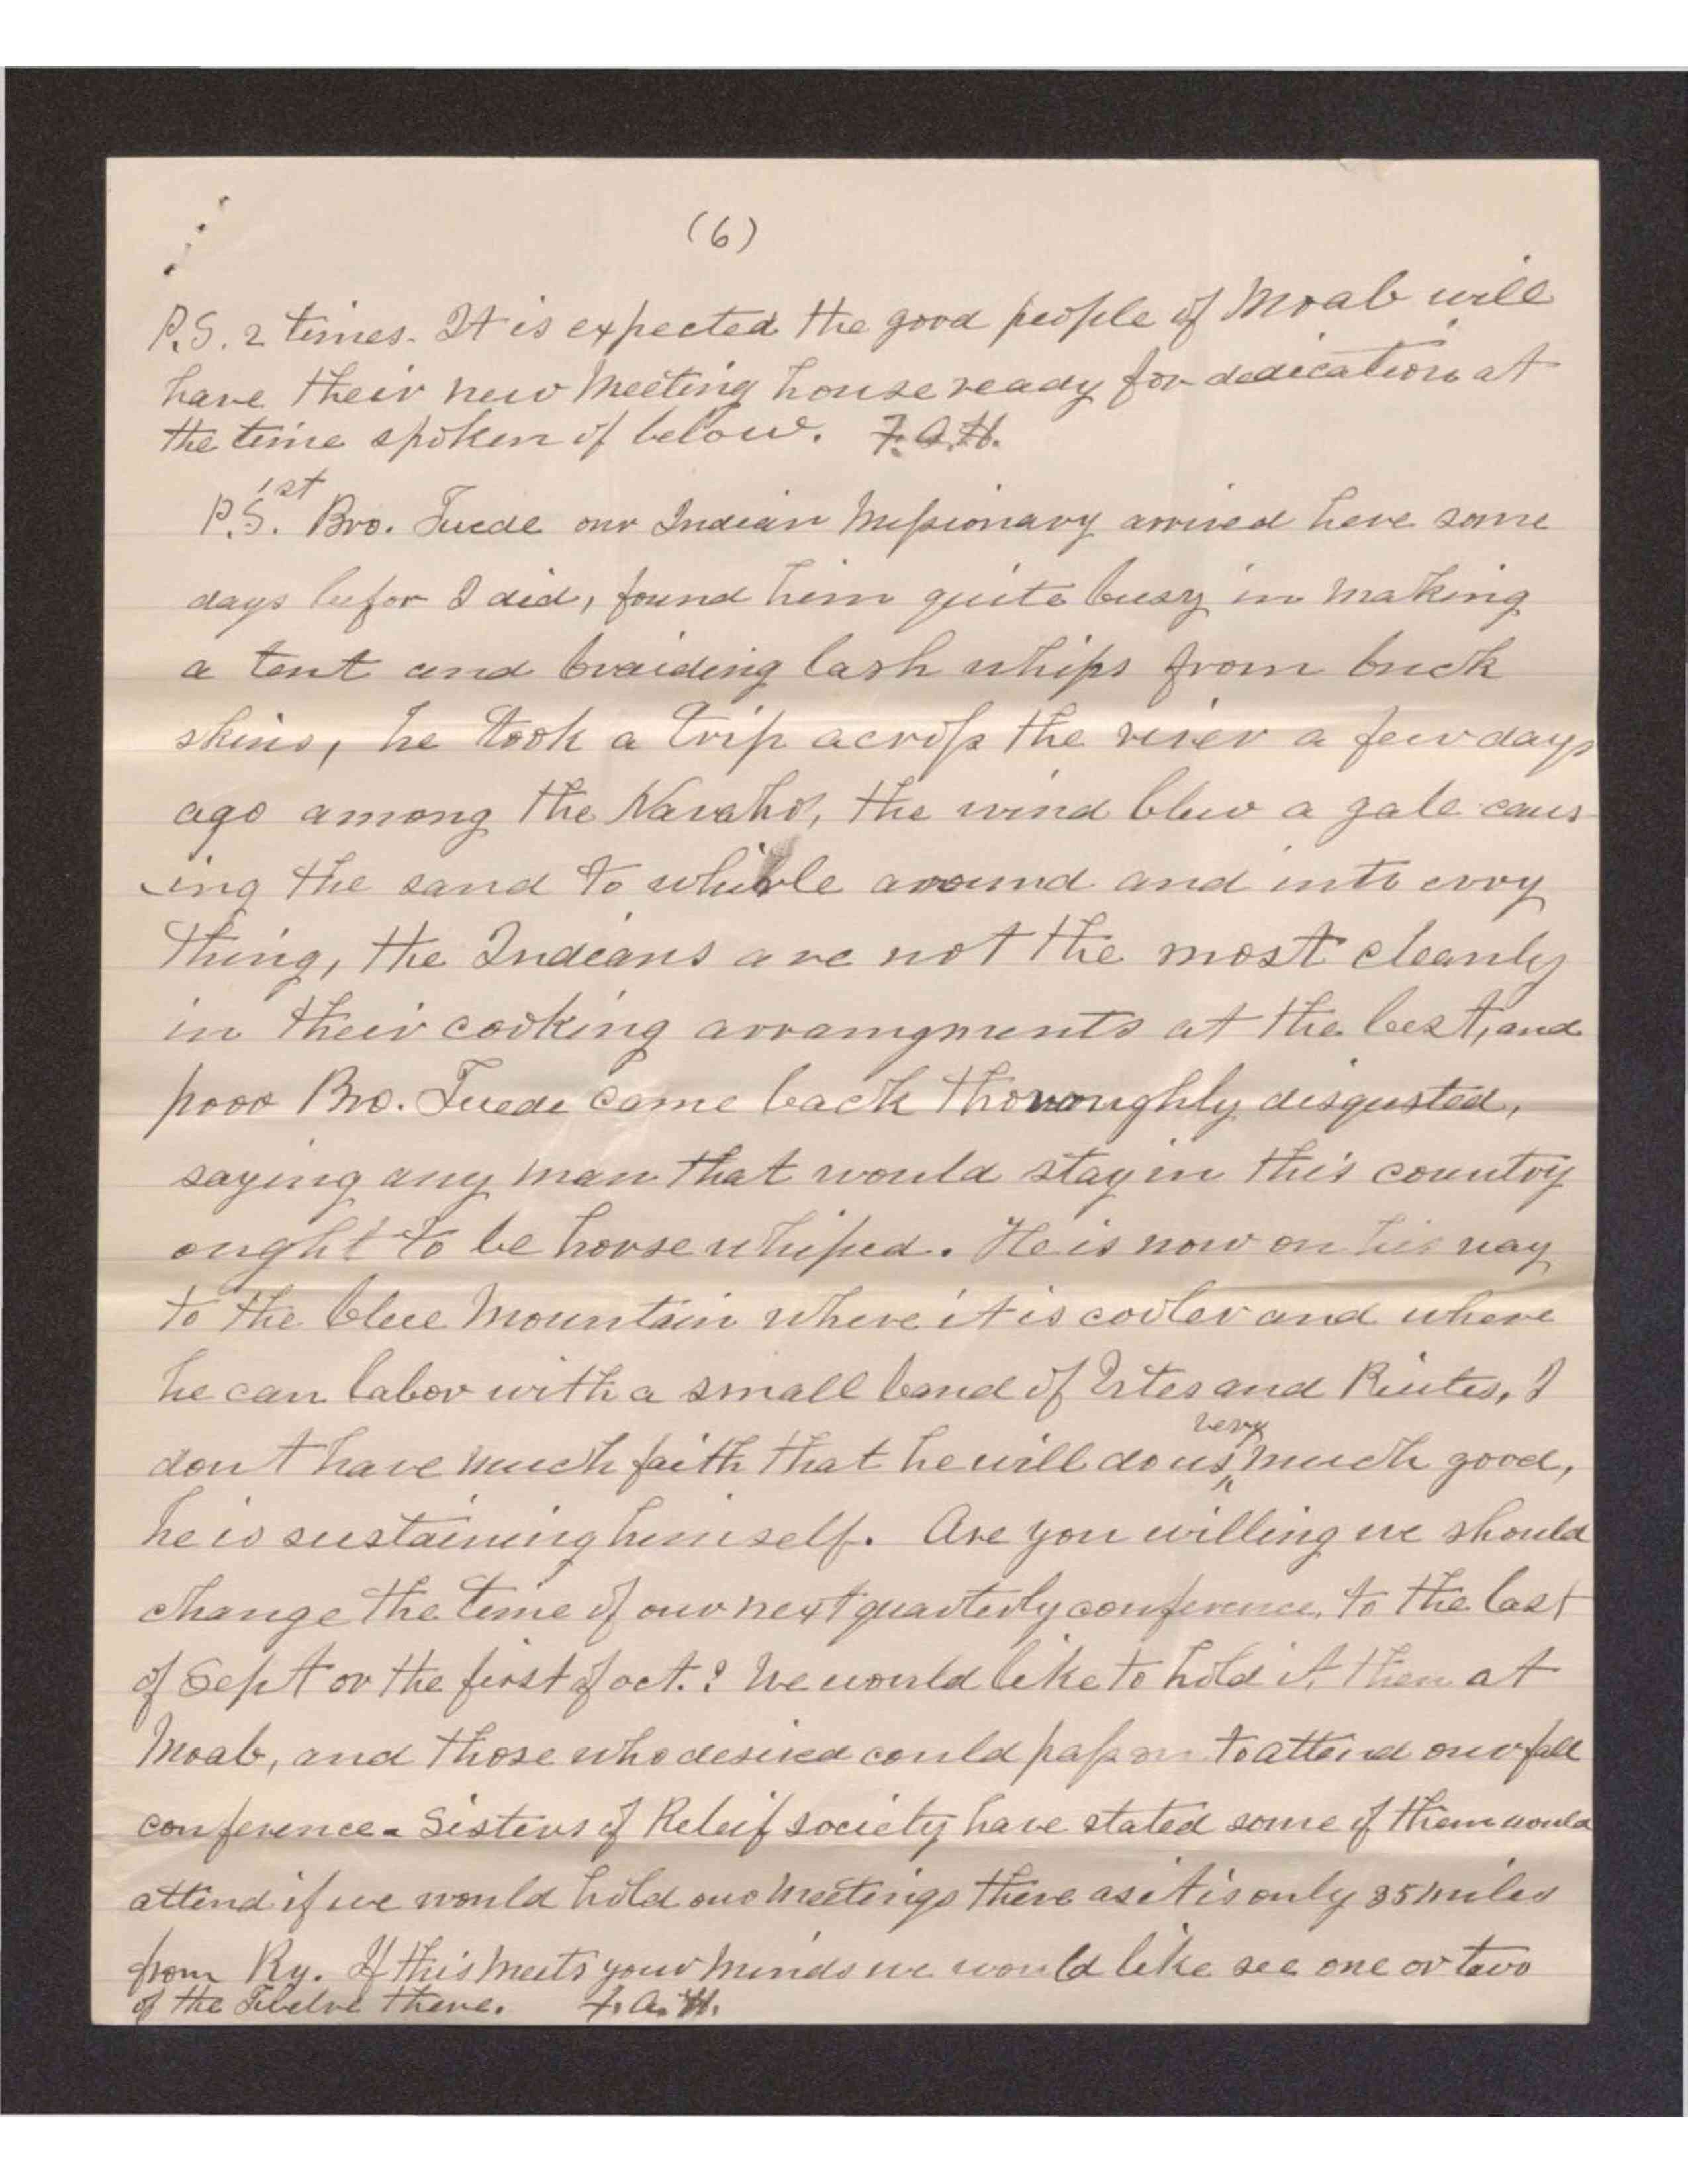 (6)
P.S. 2 times. It is expected the good people of Moab will
have their new Meeting house ready for dedication at
the time spoken of below. F.A.H.
P.S. 1st Bro. Tuede our Indian Missionary arrived here some
days befor I did, found him quite busy in making
a tent and braiding lash whips from buck
skins, he took a trip across the river a few days
ago among the Navaho's, the wind blew a gale caus
ing the sand to whirle around and into evry
thing, the Indians are not the most cleanly
in their cooking arrangments at the best, and
poor Bro. Tuede came back thoroughly disgusted,
saying any man that would stay in this country
ought to be horse whiped. He is now on his way
to the blue Mountain where it is cooler and where
he can labor with a small band of Utes and Piutes, I
don't have much faith that he will do us very much good,
he is sustaining himself. Are you willing we should
change the time of our next quarterly conference, to the last
of Sept or the first of oct.? We would like to hold it then at
Moab, and those who desired could pass on to attend our fall
conference - Sisters of Releif society have stated some of them would
attend if we would hold our Meetings there as it is only 35 miles
from Ry. If this meets your minds we would like see one or two
of the Twelve there. F.A.H.